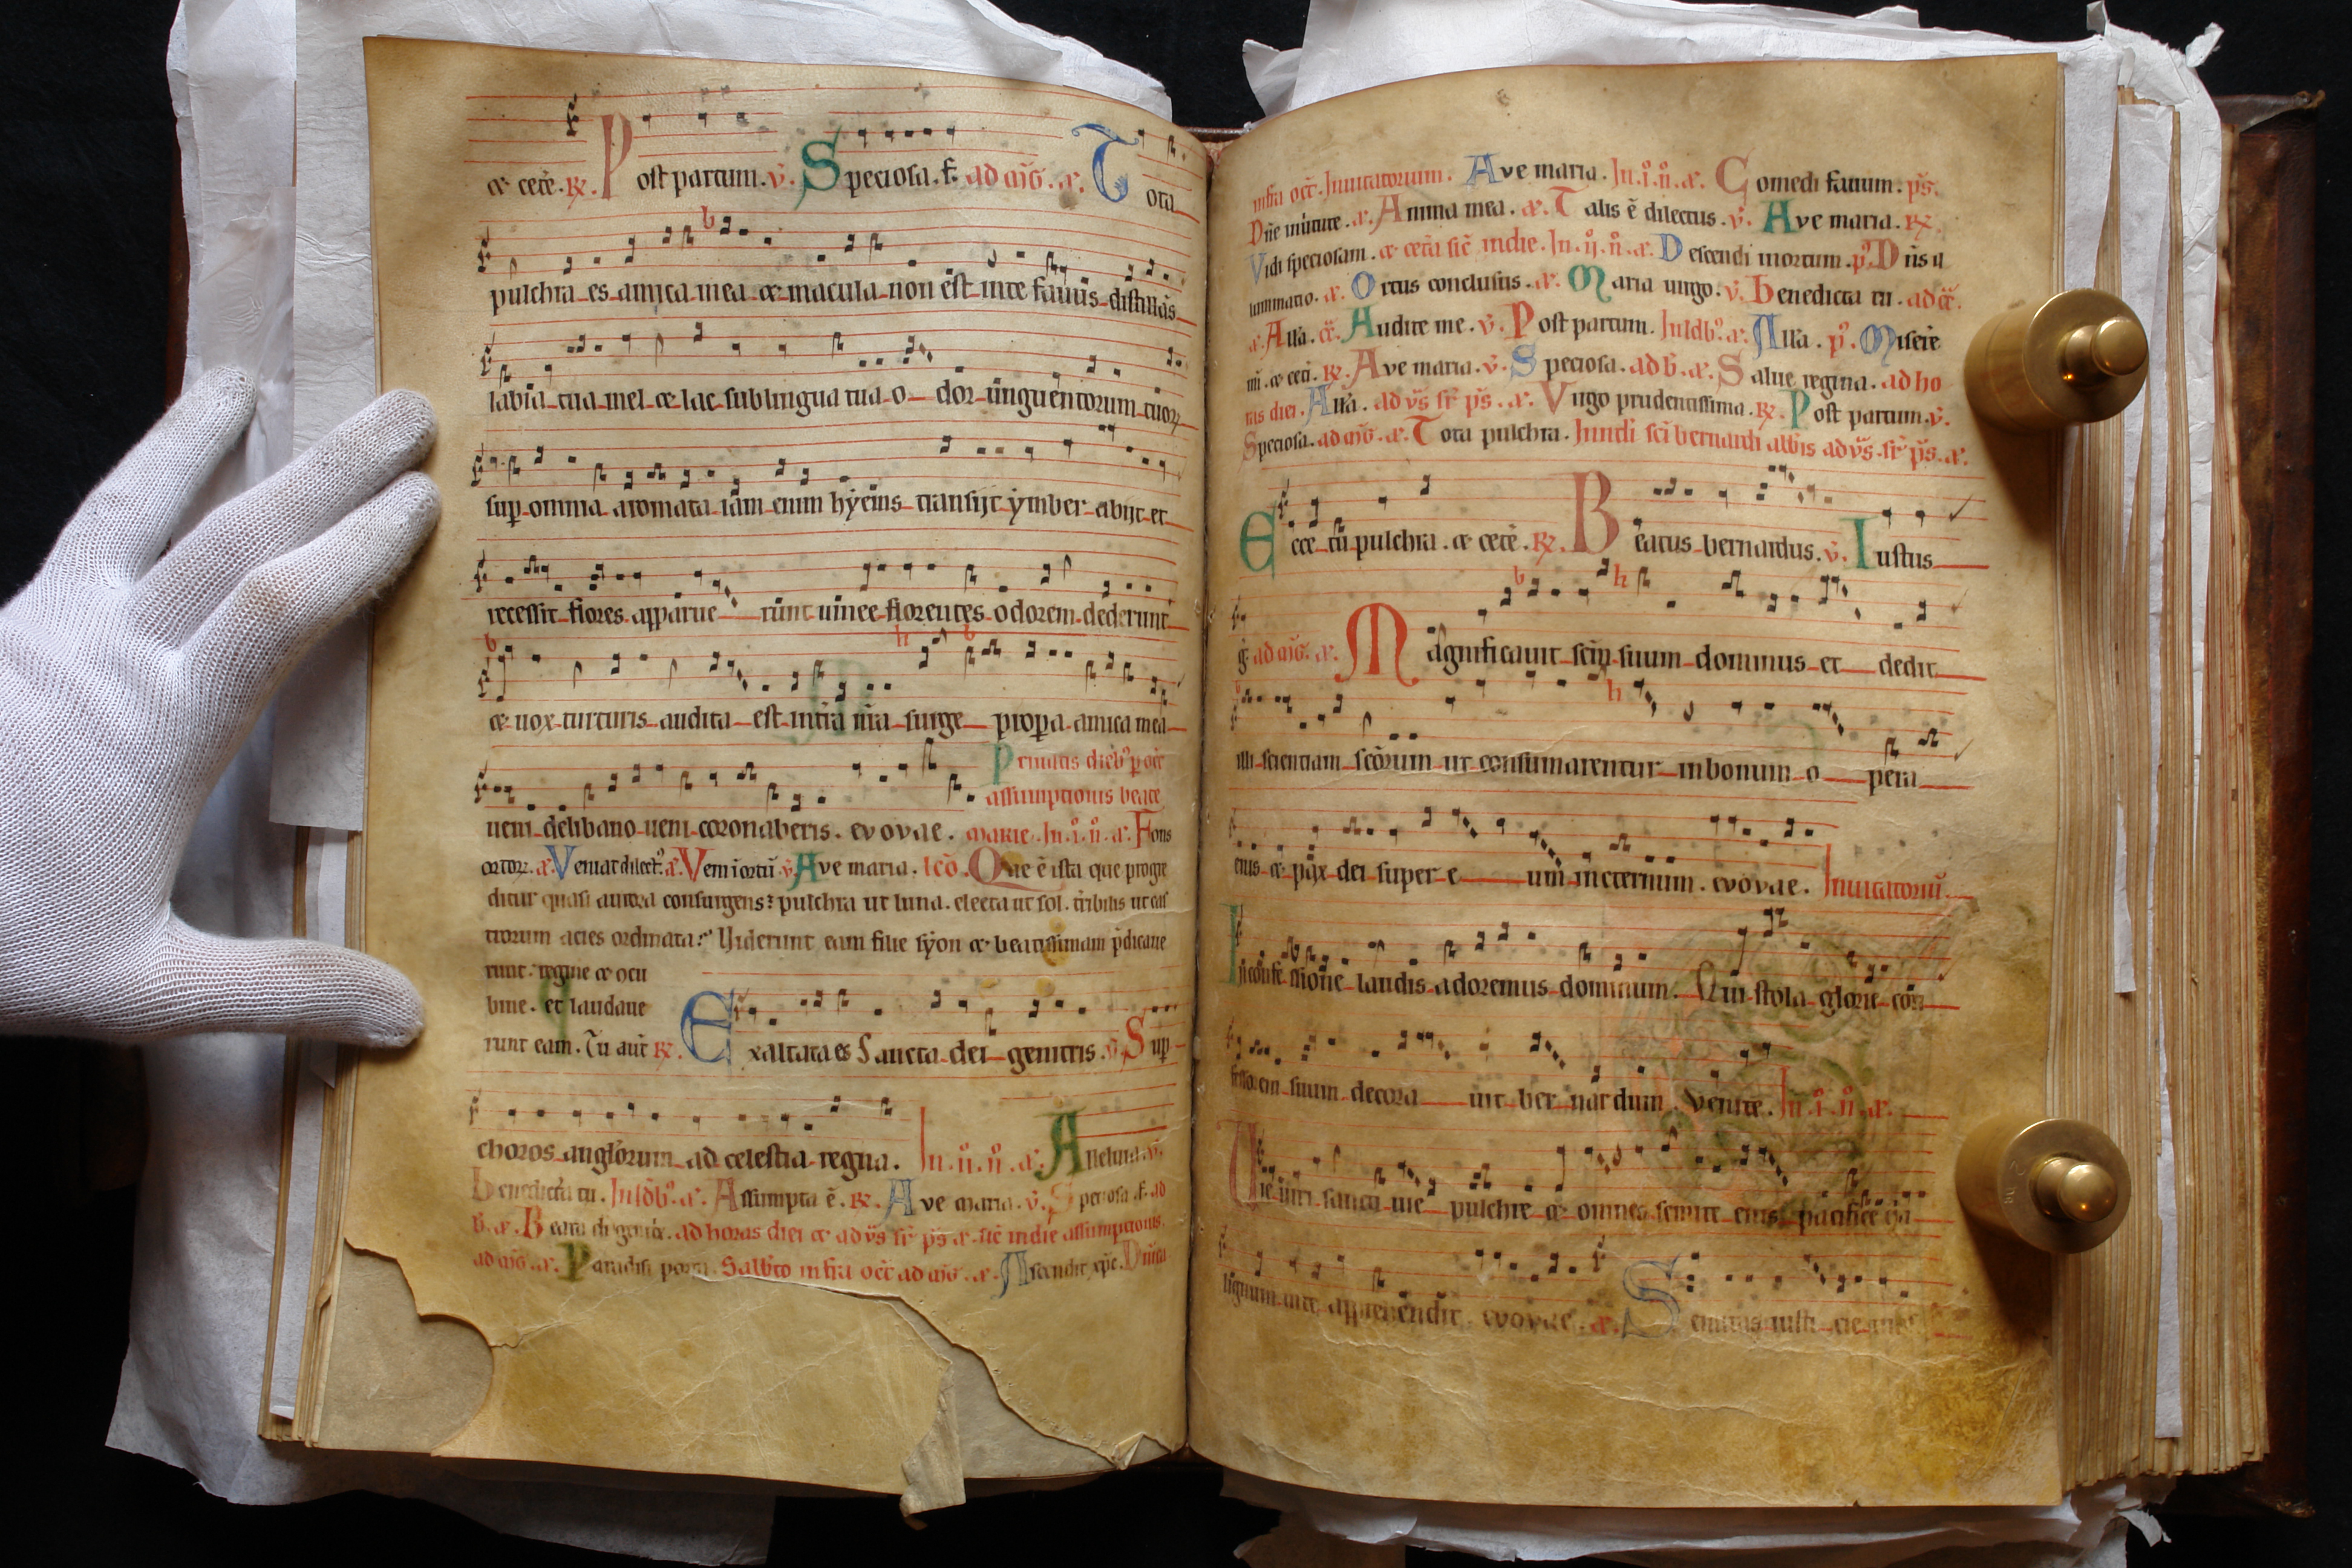 ⁊ cete. ℟. Post partum. v̄. Speciosa. f. ad mḡ. a⁊. Tota
pulchra es amica mea ⁊ macula non est in te fauus distillās
labia tua mel ⁊ lac sub lingua tua odor unguentorum tuoꝝ
sup omnia aromata iam enim hyems transijt ymber abijt et
recessit flores apparuerunt uinee florentes odorem dederunt
⁊ uox turturis audita est in tr̄a nr̄a surge propera amica mea
Priuatis dieb⁹ p oct̄
assumptionis beate
ueni de libano ueni coronaberis. evovae. marie. In .i. n̄. a⁊. Fons
ortoꝝ. a⁊. Veniat dilect⁹. a⁊. Veni i ortū. v̄. Ave maria. lec̄o. Que ē ista que progre
ditur quasi aurora consurgens? pulchra ut luna. electa ut sol. t̄ribilis ut cas
trorum acies ordinata? Uiderunt eam filie syon ⁊ beatissimam p̄dicaue
runt. regine ⁊ ocu
bine. et laudaue
runt eam. Tu aut̄ ℟. Exaltata es Sancta dei genitrix. v̄. Sup
choros anglorum ad celestia regna. In .ii. n̄. a⁊. Alleluia. v̄.
Benedicta tu. In ldb⁹. a⁊. Assumpta ē. ℟. Ave maria. v̄. Speciosa. f. ad
b̄. a⁊. Beata di genit̄. ad horas diei ⁊ ad vs̄ sr̄ ps̄ a⁊. sic̄ in die assumptionis
ad mḡ. a⁊. Paradisi porta. Sabb̄to infra oct̄ ad mḡ. a⁊. Ascendit xp̄c. Dn̄ica
infra oct̄. Inuitatorium. Ave maria. In .i. n̄. a⁊. Comedi fauum. ps̄.
Dn̄e inuitate. a⁊. Anima mea. a⁊. Talis ē dilectus. v̄. Ave maria. ℟.
Vidi speciosam. ⁊ cet̄a sic̄ in die. In .ij. n̄. a⁊. Descendi in ortum. p̄. Dn̄s il
luminatio. a⁊. Ortus conclusus. a⁊. Maria uirgo. v̄. Benedicta tu. ad cc̄.
a⁊. All̄a. cc̄. Audite me. v̄. Post partum. In ldb⁹. a⁊. All̄a. p̄. Misere
mi. ⁊ cet̄i. ℟. Ave maria. v̄. Speciosa. ad b̄. a⁊. Salue regina. ad ho
ras diei. All̄a. ad vs̄ sr̄ ps̄. a⁊. Virgo prudentissima. ℟. Post partum. v̄.
Speciosa. ad mḡ. a⁊. Tota pulchra. In nđi sc̄i bernardi abb̄is ad vs̄. sr̄ ps̄. a⁊.
Ecce tu pulchra. ⁊ cete. ℟. Beatus bernardus. v̄. Iustus
g̅. ad mḡ. a⁊. Magnificauit sc̄m suum dominus et dedit
illi scientiam sc̄orum ut consumarentur in bonum opera
eius ⁊ pax dei super eum in eternum. evovae. Inuitatoriū.
In confessione laudis adoremus dominum. Qui stola glorie con
fessorem suum decorauit bernardum. Venite. In .i. n̄. a⁊.
Uie uiri sancti uie pulchre ⁊ omnes semite eius pacifice q̄a
lignum uite apprehendit. evovae. a⁊. Semitas iusti